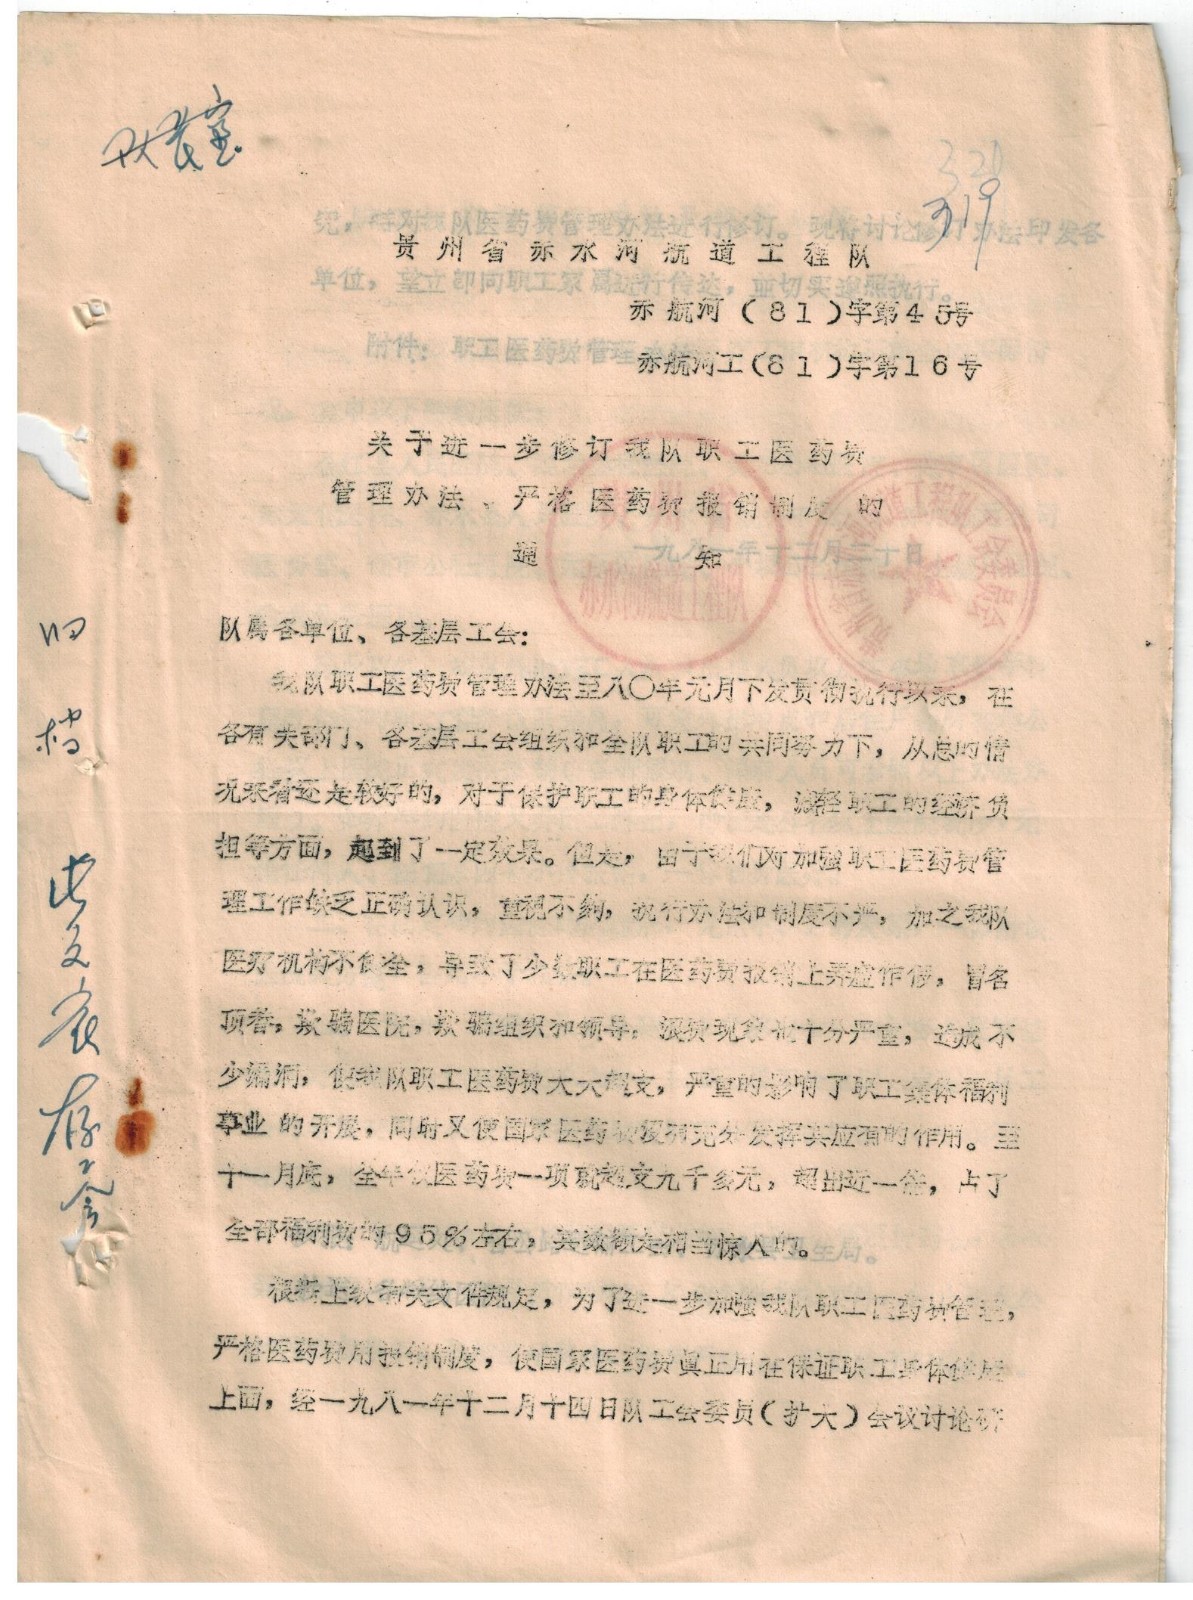 320
319
贵州省赤水河航道工程队
赤航河(81)字第45号
赤航河工(81)字第16号
关于进一步修订我队职工医药费
管理办法、严格医药费报销制度的
通知
队属各单位、各基层工会:
我队职工医药费管理办法至八〇年元月下发贯彻执行以来,在
各有关部门、各基层工会组织和全队职工的共同努力下,从总的情
况来看还是较好的,对于保护职工的身体健康,减轻职工的经济负
担等方面,起到了一定效果。但是,由于我们对加强职工医药费管
理工作缺乏正确认识,重视不够,执行办法和制度不严,加之我队
医疗机构不健全,导致了少数职工在医药费报销上弄虚作假,冒名
顶替,欺骗医院,欺骗组织和领导,浪费现象也十分严重,造成不
少漏洞,使我队职工医药费大大超支,严重的影响了职工集体福利
事业的开展,同时又使国家医药费没有充分发挥其应有的作用。至
十一月底,全年仅医药费一项就超支九千多元,超出近一倍,占了
全部福利费的95%左右,其数额是相当惊人的。
根据上级有关文件规定,为了进一步加强我队职工医药费管理,
严格医药费用报销制度,使国家医药费真正用在保证职工身体健康
上面,经一九八一年十二月十四日队工会委员(扩大)会议讨论研
究,特对我队医药费管理办法进行修订。现将讨论修订办法印发各
单位,望立即向职工家属进行传达,并切实遵照执行。
附件:职工医药费管理
一九八一年十二月三十日
赤水河航道工程队
归档